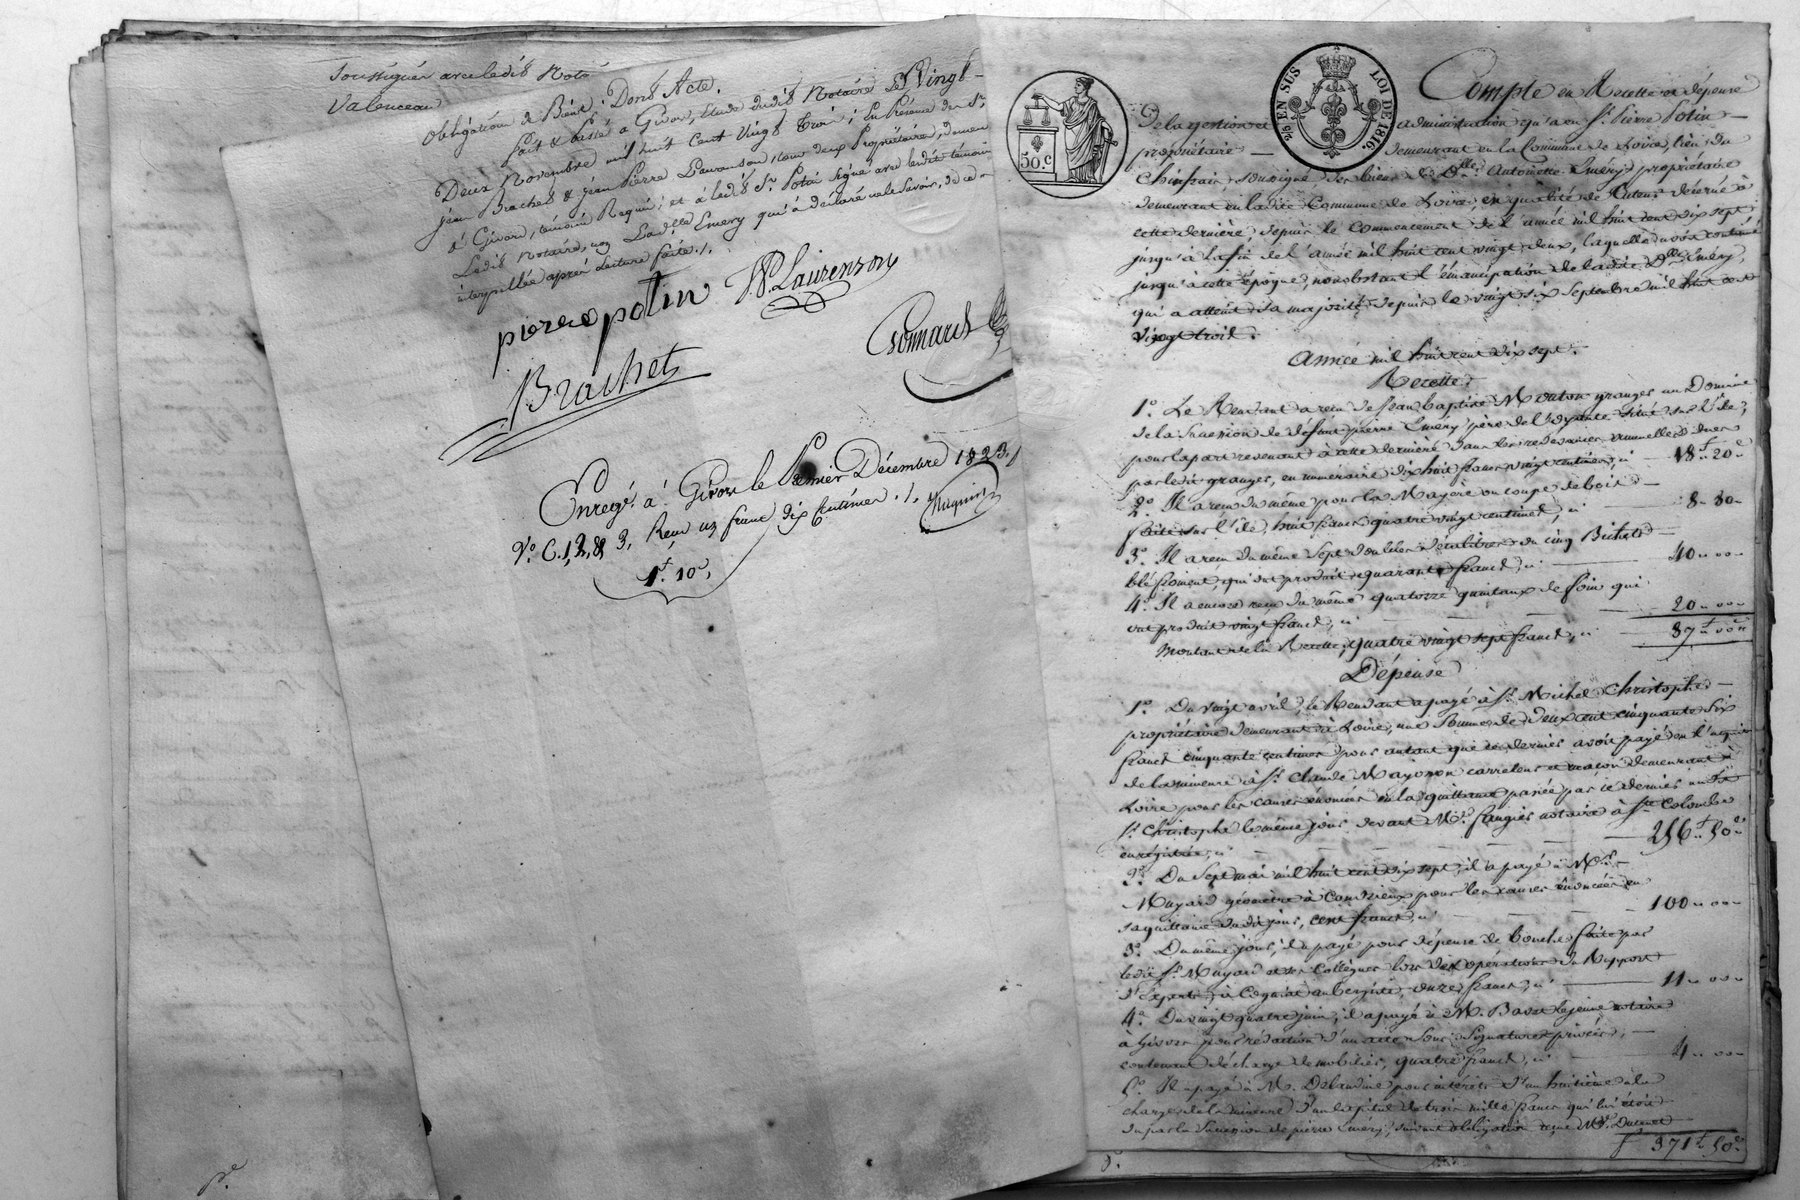 Soussignés avec ledit Notaire
Valenceau
obligation de Bien: Dont Acte.
Fait & passé à Givors, Etude dudit Notaire Le Vingt
Deux Novembre mil huit Cent Vingt Trois; En Présence de Sr.
jean Brachet & jean Pierre Laurenson, tous deux Propriétaires, demeurant
à Givors, témoins Requis; et à ledit Sr. Potin signé avec lesdits témoins
Ledit Notaire, non Ladlle Emery qui a déclaré ne le savoir, de ce
interpellée après Lecture faite./.
pierre potin JP. Laurenson
Brachet
Enregé. à Givors le Premier Décembre 1823,
Vo. C. 1, 2, & 3. Reçu un franc dix Centimes ./.
1f. 10c,
50 C
2/6 EN SUS LOI DE 1816
Compte en Recette et dépense
De la gestion et administration qu'a eu Sr. Pierre Potin
propriétaire demeurant en la Commune de Loire, lieu du
Chinfrais, soussigné, des biens de Dlle. Antoinette Emery propriétaire
demeurant en ladite Commune de Loire, en qualité de tuteur décerné à
cette dernière depuis le commencement de l'année mil huit cent dix sept,
jusqu'à la fin de l'année mil huit cent vingt deux, laquelle a continué
jusqu'à cette époque, nonobstant l'émancipation de ladite Dlle. Emery,
qui a atteint sa majorité depuis le vingt six Septembre mil huit cent
vingt trois.
Année mil huit cent dix sept.
Recette
1o. Le Rendant a reçu de Jean baptiste Mouton granger au Domaine
de la Succession de défunt pierre Emery père de l'oyante situé sur l'île,
pour la part revenant à cette dernière dans les redevances annuelles dues
par ledit granger, en numéraire dix huit francs vingt centimes, ci 18f. 20c
2o. Il a reçu du même pour la Mayère ou coupe de bois
faite sur l'île, huit francs quatre vingt centimes, ci 8. 80
3o. Il a reçu du même Sept doubles décalitres ou cinq Bichets
blé froment, qui ont produit quarante francs, ci 40. 00
4o. Il a encore reçu du même quatorze quintaux de foin qui
ont produit vingt francs, ci 20. 00
Montant de la Recette, quatre vingt sept francs, ci 87f. 00c
Dépense
1o. Du vingt avril, le Rendant a payé à Sr. Michel Christophe
propriétaire demeurant à Loire, une Somme de Deux cent cinquante Six
francs cinquante centimes pour autant que ce dernier avoit payé en l'acquit
de la mineure à Sr. Claude Mayoron carreleur et maçon demeurant à
Loire pour les causes énoncées en la quittance passée par ce dernier audit
Sr. Christophe le même jour devant Me. Faugier notaire à Ste Colombe
enregistrée, ci 256f. 50c
2o. Du Sept mai mil huit cent dix sept, il a payé à Mr.
Muyard géomètre à Condrieux pour les causes énoncées en
sa quittance dudit jour, cent francs, ci 100. 00
3o. Du même jour, il a payé pour dépense de bouche faite par
ledit Sr. Muyard et ses Collègues lors des opérations du Rapport
d'Experts, à Cognat aubergiste, onze francs, ci 11. 00
4o. Du vingt quatre juin, il a payé à M. Basset le jeune notaire
à Givors pour rédaction d'un acte Sous Signatures privées,
contenant décharge de mobilier, quatre francs, ci 4. 00
5o. Il a payé à M. Delandine pour intérêts d'un huitième à la
charge de la mineure d'un capital de trois mille francs qui lui étoit
du par la Succession de pierre Emery, suivant obligation reçue Me.
371f. 50c